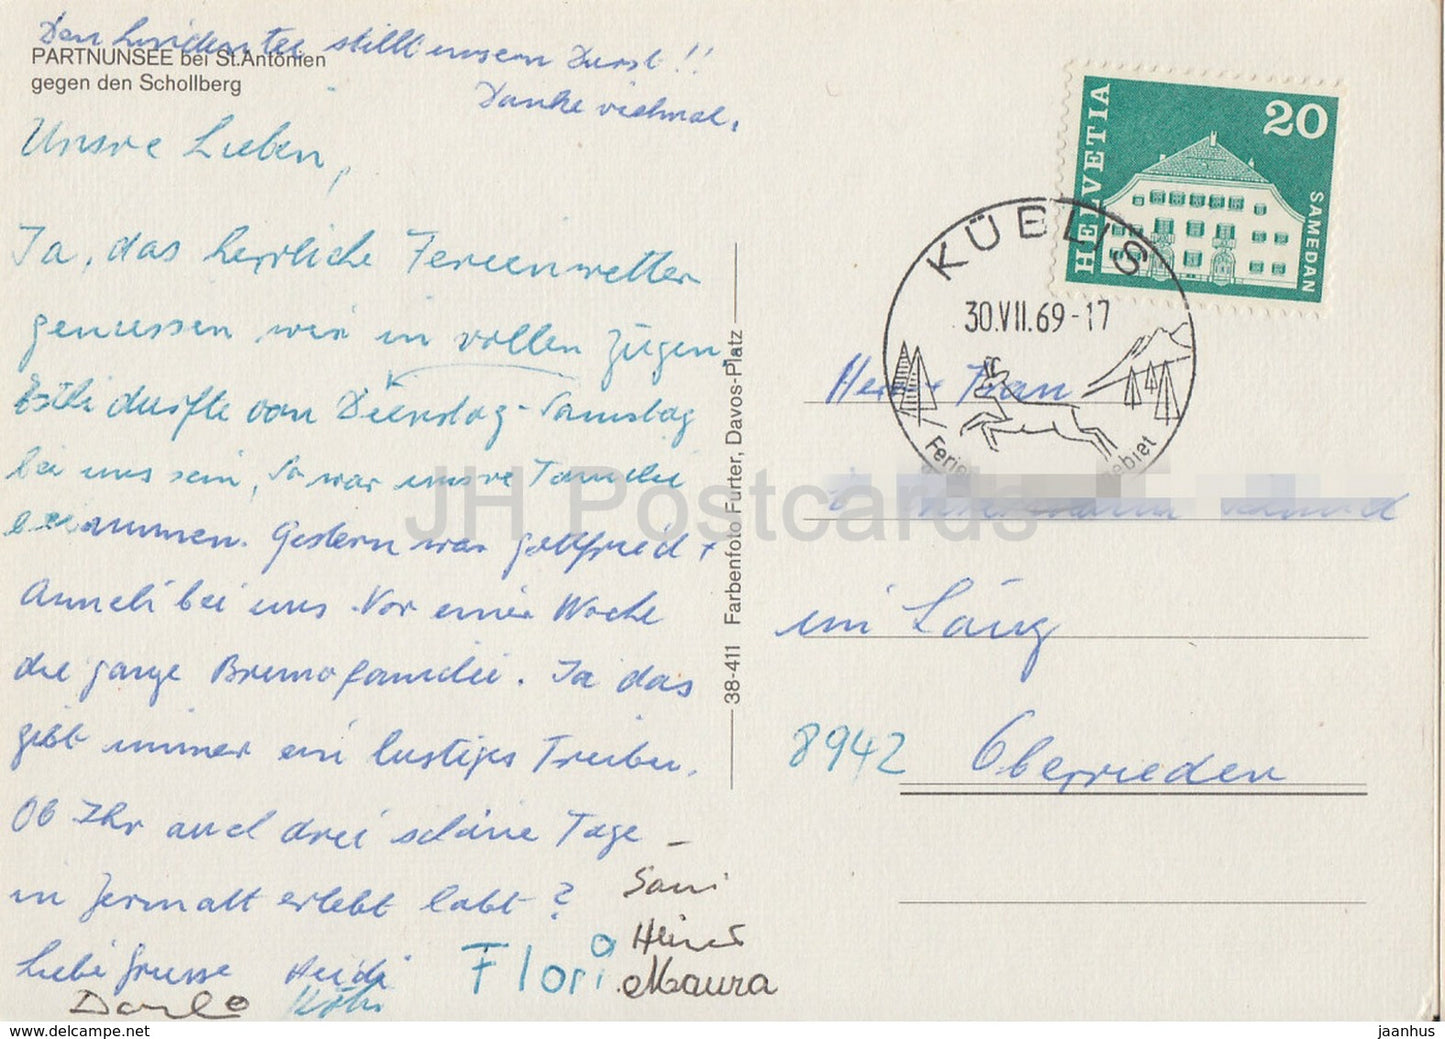 Den Lindentee stillt unsern Durst!!
Danke vielmal.
PARTNUNSEE bei St.Antönien
gegen den Schollberg
Unsre Lieben,
Ja, das herrliche Ferienwetter
geniessen wir in vollen Zügen.
durfte von Dienstag-Samstag
bei uns sein, so war unsre Familie
zusammen. Gestern war Gottfried +
Anneli bei uns. Vor einer Woche
die ganze Brunofamilie. Ja das
gibt immer ein lustiges Treiben.
Ob Ihr auch drei schöne Tage
in Zermatt erlebt habt?
Liebe Grüsse Heidi
Flori
Heinz
Maura
38-411 Farbenfoto Furter, Davos-Platz
HELVETIA
20
SAMEDAN
KÜBLIS
30.VII.69-17
Herr + Frau
im Läng
8942 Oberrieden
JH Postcards
jaanhus - delcampe.net